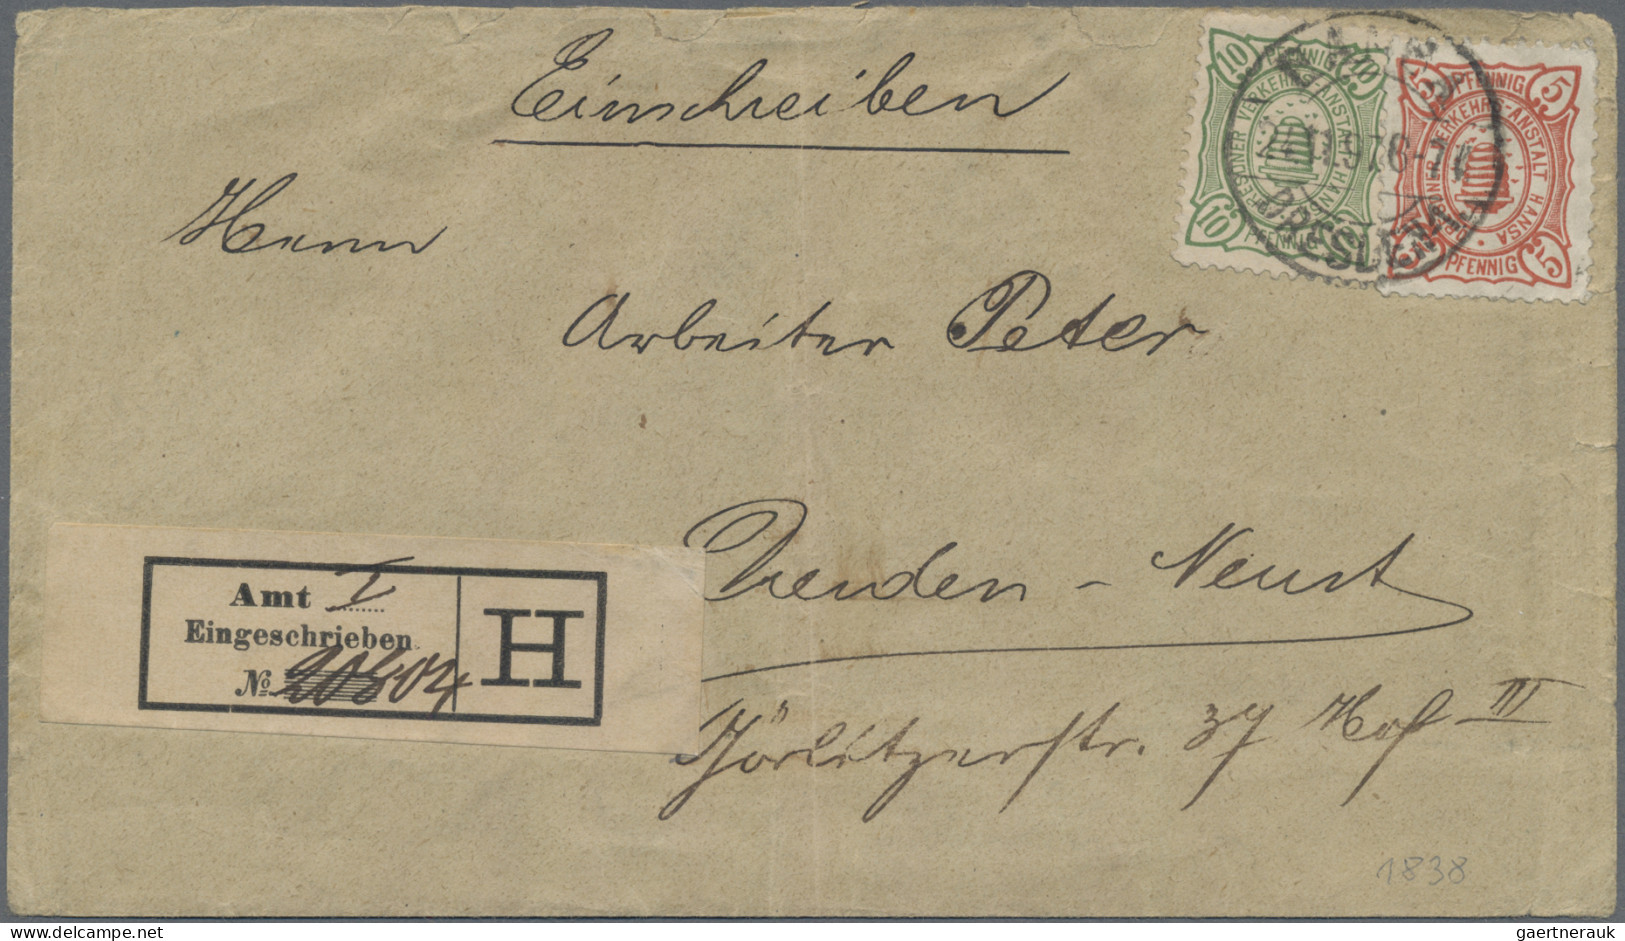 Einschreiben
Herrn
Arbeiter Peter
Dresden - Neust
Görlitzerstr. 37 Hof III
Amt I
Eingeschrieben
№ 20804
H
10 PFENNIG 10
DRESDNER VERKEHRS-ANSTALT HANSA
10 PFENNIG
5 PFENNIG 5
DRESDNER VERKEHRS-ANSTALT HANSA
5 PFENNIG 5
DRESDEN
1838
DELCAMPE.NET
gaertnerauk